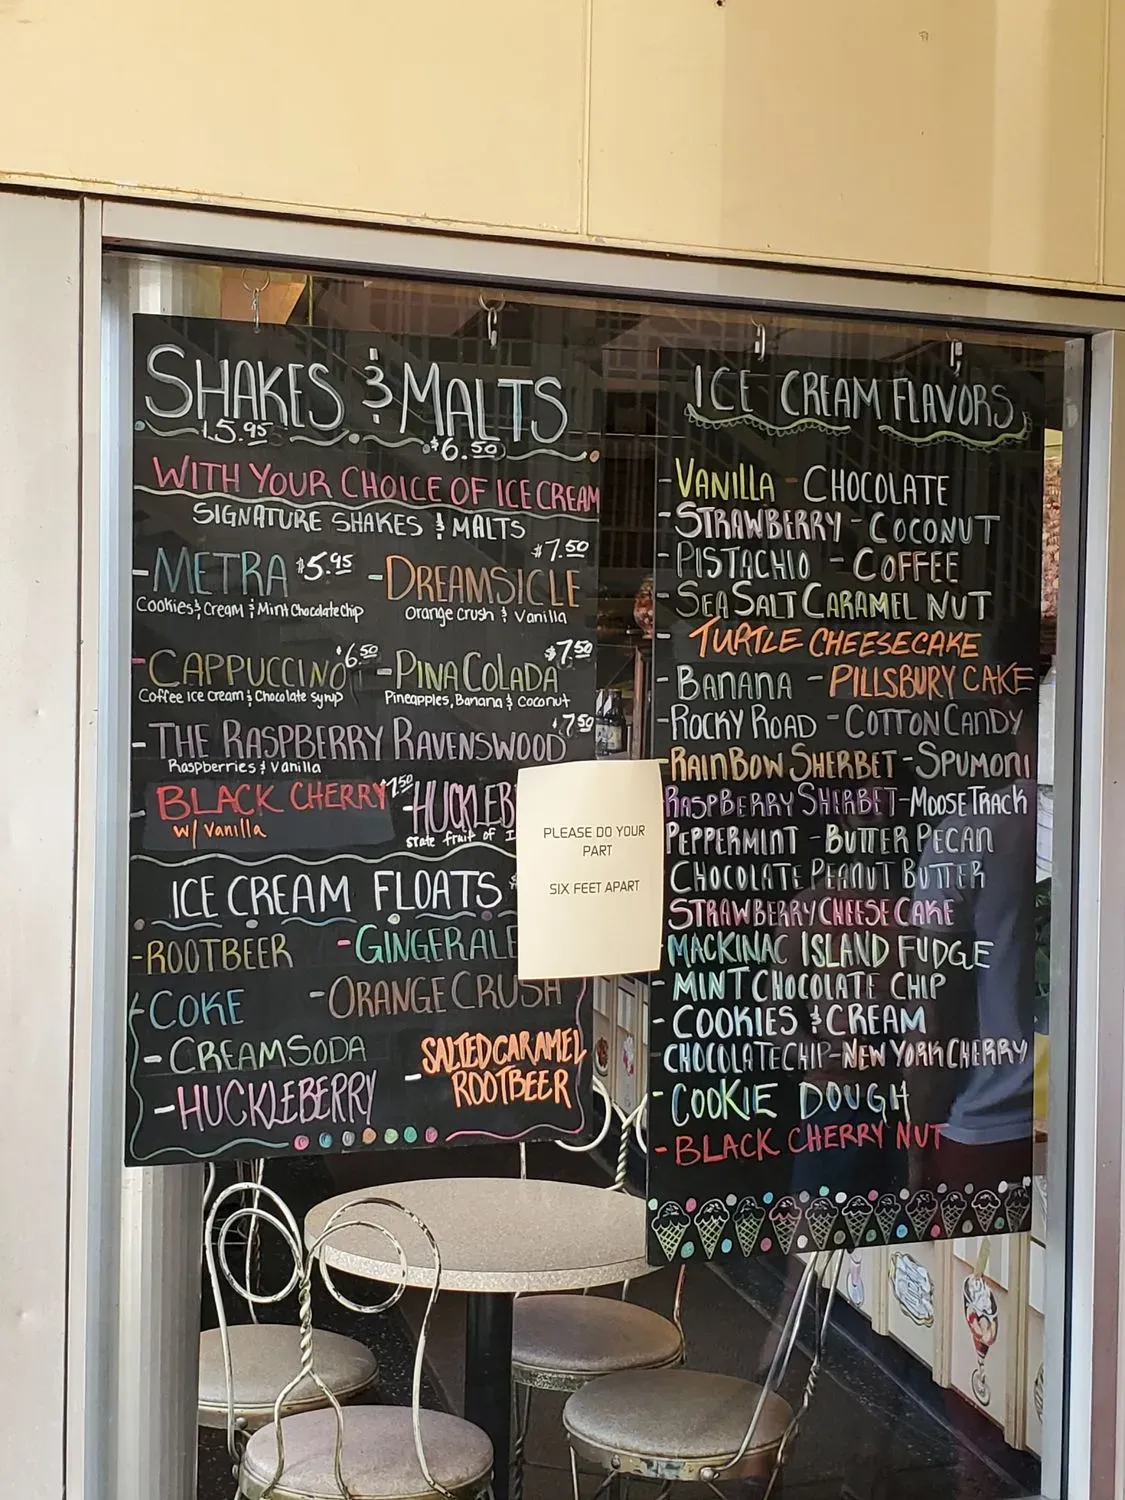 SHAKES & MALTS
$5.95
$6.50
WITH YOUR CHOICE OF ICE CREAM
SIGNATURE SHAKES & MALTS
-METRA $5.95
Cookies & Cream & Mint Chocolate Chip
-DREAMSICLE $7.50
Orange crush & Vanilla
-CAPPUCCINO $6.50
Coffee Ice Cream & Chocolate Syrup
-PINA COLADA $7.50
Pineapples, Banana & Coconut
-THE RASPBERRY RAVENSWOOD $7.50
Raspberries & Vanilla
BLACK CHERRY 7.50
w/ Vanilla
-HUCKLEB
State fruit of
ICE CREAM FLOATS
-ROOTBEER -GINGERALE
-COKE -ORANGE CRUSH
-CREAM SODA
-SALTED CARAMEL
ROOTBEER
-HUCKLEBERRY
PLEASE DO YOUR
PART
SIX FEET APART
ICE CREAM FLAVORS
-VANILLA - CHOCOLATE
-STRAWBERRY - COCONUT
-PISTACHIO - COFFEE
-SEA SALT CARAMEL NUT
- TURTLE CHEESECAKE
-BANANA - PILLSBURY CAKE
-ROCKY ROAD - COTTON CANDY
-RAINBOW SHERBET - SPUMONI
RASPBERRY SHERBET - MOOSE TRACK
PEPPERMINT - BUTTER PECAN
CHOCOLATE PEANUT BUTTER
STRAWBERRY CHEESE CAKE
MACKINAC ISLAND FUDGE
- MINT CHOCOLATE CHIP
- COOKIES & CREAM
-CHOCOLATE CHIP - NEW YORK CHERRY
- COOKIE DOUGH
- BLACK CHERRY NUT